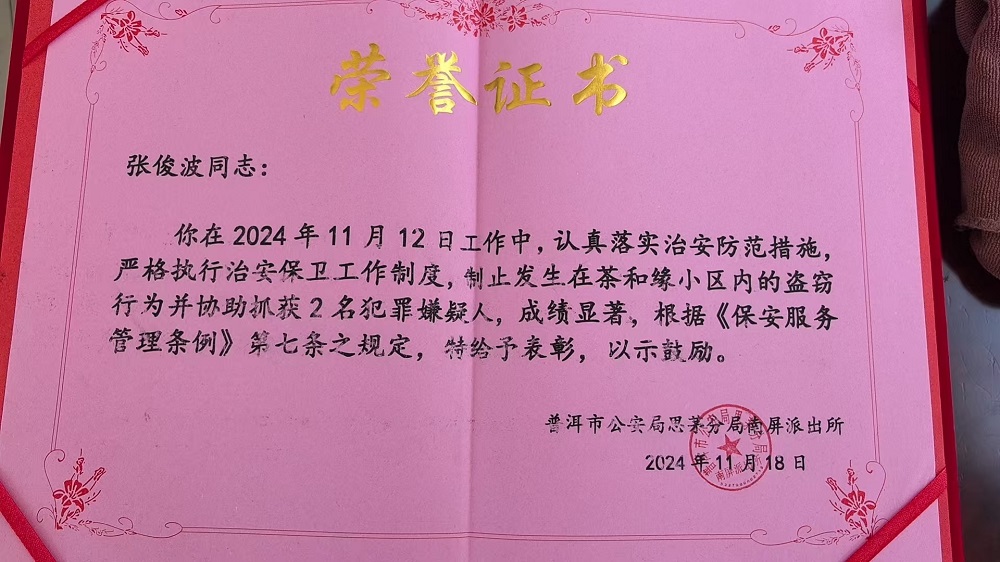 荣誉证书
张俊波同志：
你在2024年11月12日工作中，认真落实治安防范措施，
严格执行治安保卫工作制度，制止发生在茶和缘小区内的盗窃
行为并协助抓获2名犯罪嫌疑人，成绩显著，根据《保安服务
管理条例》第七条之规定，特给予表彰，以示鼓励。
普洱市公安局思茅分局南屏派出所
2024年11月18日